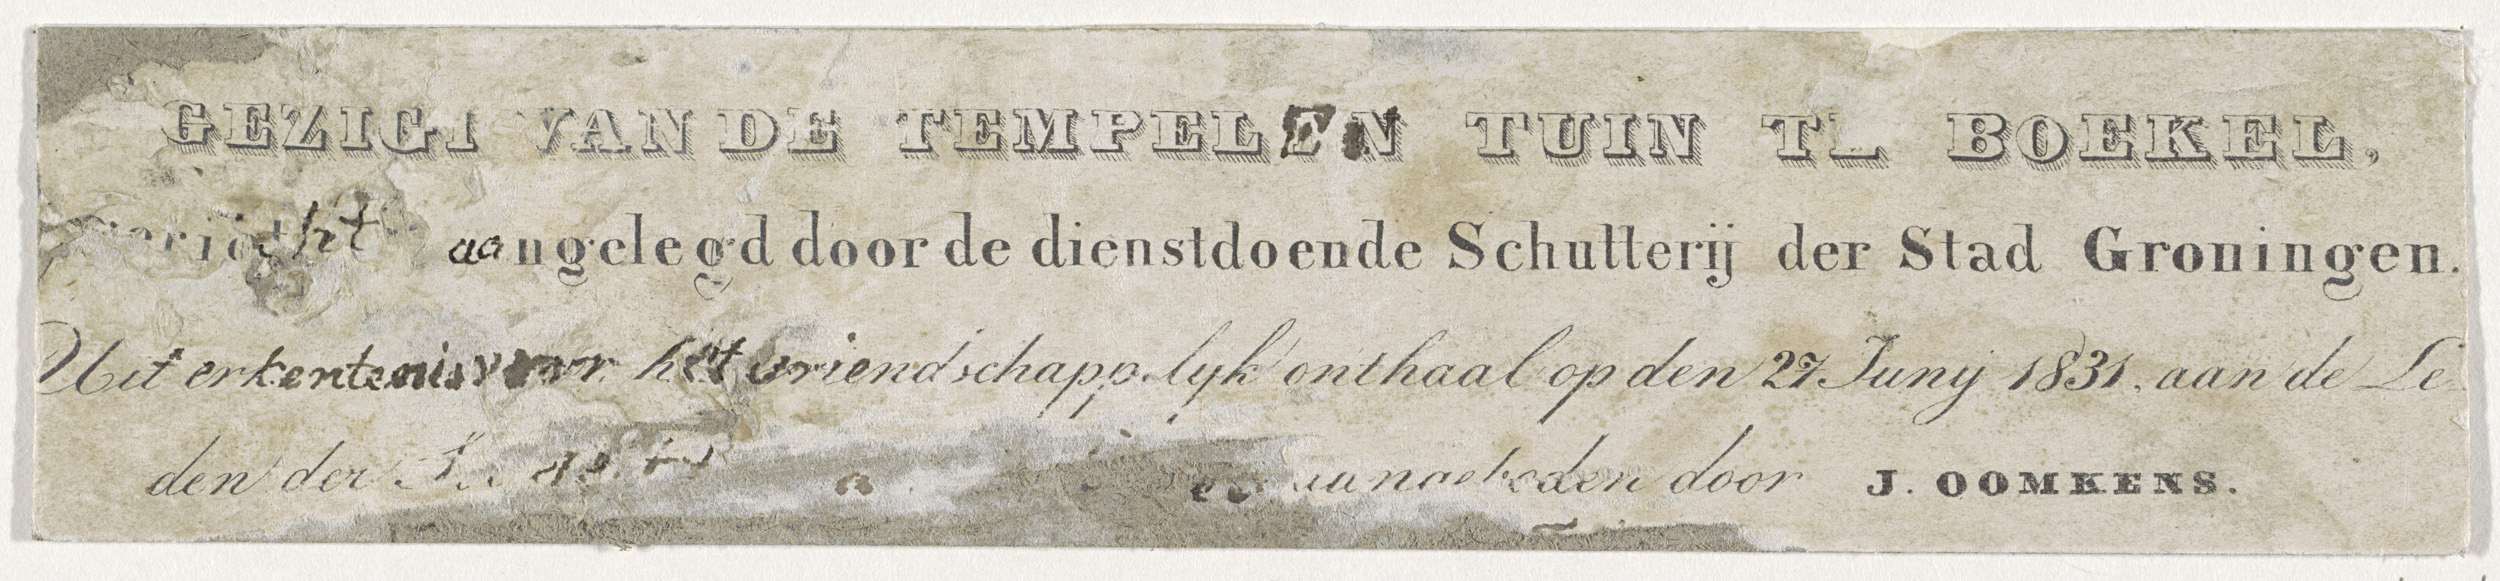 GEZIGT VAN DE TEMPEL EN TUIN TE BOEKEL,
aangelegd door de dienstdoende Schutterij der Stad Groningen.
Uit erkentenis voor het vriendschappelyk onthaal op den 27 Junij 1831, aan de Le
den der aangeboden door J. OOMKENS.